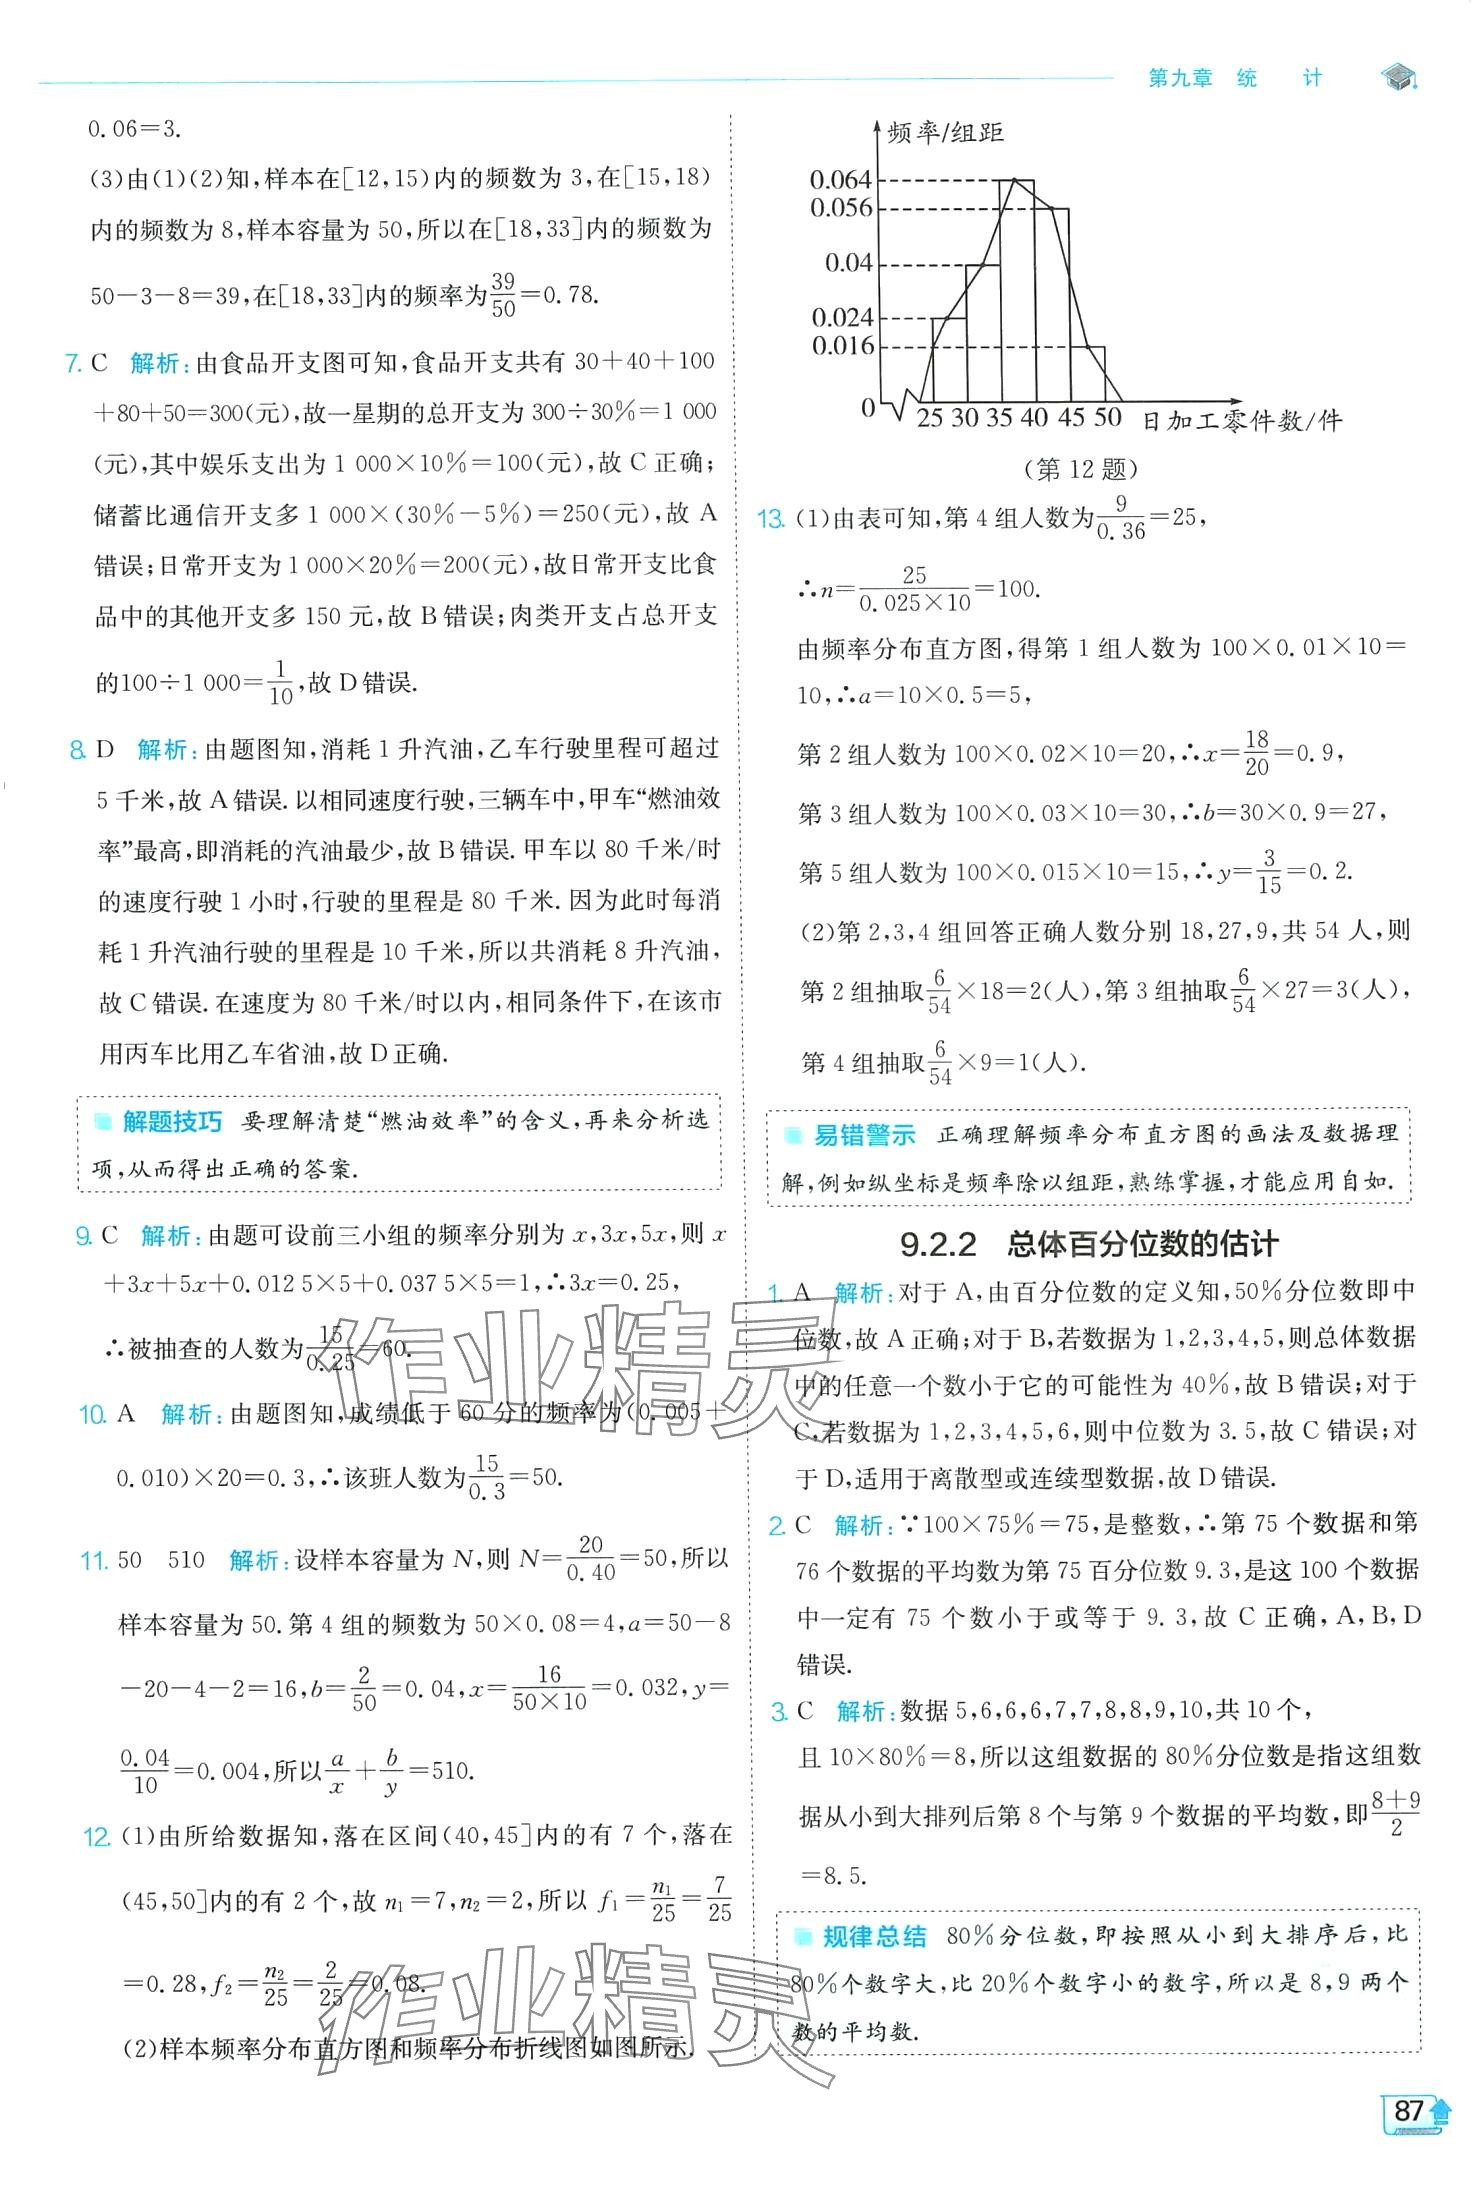 第九章 统 计
0.06=3.
(3)由(1)(2)知,样本在[12,15)内的频数为3,在[15,18)
内的频数为8,样本容量为50,所以在[18,33]内的频数为
50-3-8=39,在[18,33]内的频率为39/50=0.78.
7. C 解析:由食品开支图可知,食品开支共有30+40+100
+80+50=300(元),故一星期的总开支为300÷30%=1 000
(元),其中娱乐支出为1 000×10%=100(元),故C正确;
储蓄比通信开支多1 000×(30%-5%)=250(元),故A
错误;日常开支为1 000×20%=200(元),故日常开支比食
品中的其他开支多150元,故B错误;肉类开支占总开支
的100÷1 000=1/10,故D错误.
8. D 解析:由题图知,消耗1升汽油,乙车行驶里程可超过
5千米,故A错误.以相同速度行驶,三辆车中,甲车“燃油效
率”最高,即消耗的汽油最少,故B错误.甲车以80千米/时
的速度行驶1小时,行驶的里程是80千米.因为此时每消
耗1升汽油行驶的里程是10千米,所以共消耗8升汽油,
故C错误.在速度为80千米/时以内,相同条件下,在该市
用丙车比用乙车省油,故D正确.
解题技巧 要理解清楚“燃油效率”的含义,再来分析选
项,从而得出正确的答案.
9. C 解析:由题可设前三小组的频率分别为x,3x,5x,则x
+3x+5x+0.012 5×5+0.037 5×5=1,∴3x=0.25,
∴被抽查的人数为15/0.25=60.
10. A 解析:由题图知,成绩低于60分的频率为(0.005+
0.010)×20=0.3,∴该班人数为15/0.3=50.
11. 50 510 解析:设样本容量为N,则N=20/0.40=50,所以
样本容量为50.第4组的频数为50×0.08=4,a=50-8
-20-4-2=16,b=2/50=0.04,x=16/(50×10)=0.032,y=
0.04/10=0.004,所以a/x+b/y=510.
12. (1)由所给数据知,落在区间(40,45]内的有7个,落在
(45,50]内的有2个,故n₁=7,n₂=2,所以f₁=n₁/25=7/25
=0.28,f₂=n₂/25=2/25=0.08.
(2)样本频率分布直方图和频率分布折线图如图所示.
频率/组距
0.064
0.056
0.04
0.024
0.016
0
25 30 35 40 45 50 日加工零件数/件
(第12题)
13. (1)由表可知,第4组人数为9/0.36=25,
∴n=25/(0.025×10)=100.
由频率分布直方图,得第1组人数为100×0.01×10=
10,∴a=10×0.5=5,
第2组人数为100×0.02×10=20,∴x=18/20=0.9,
第3组人数为100×0.03×10=30,∴b=30×0.9=27,
第5组人数为100×0.015×10=15,∴y=3/15=0.2.
(2)第2,3,4组回答正确人数分别18,27,9,共54人,则
第2组抽取6/54×18=2(人),第3组抽取6/54×27=3(人),
第4组抽取6/54×9=1(人).
易错警示 正确理解频率分布直方图的画法及数据理
解,例如纵坐标是频率除以组距,熟练掌握,才能应用自如.
9.2.2 总体百分位数的估计
1. A 解析:对于A,由百分位数的定义知,50%分位数即中
位数,故A正确;对于B,若数据为1,2,3,4,5,则总体数据
中的任意一个数小于它的可能性为40%,故B错误;对于
C,若数据为1,2,3,4,5,6,则中位数为3.5,故C错误;对
于D,适用于离散型或连续型数据,故D错误.
2. C 解析:∵100×75%=75,是整数,∴第75个数据和第
76个数据的平均数为第75百分位数9.3,是这100个数据
中一定有75个数小于或等于9.3,故C正确,A,B,D
错误.
3. C 解析:数据5,6,6,6,7,7,8,8,9,10,共10个,
且10×80%=8,所以这组数据的80%分位数是指这组数
据从小到大排列后第8个与第9个数据的平均数,即(8+9)/2
=8.5.
规律总结 80%分位数,即按照从小到大排序后,比
80%个数字大,比20%个数字小的数字,所以是8,9两个
数的平均数.
作业精灵
作业精灵
87